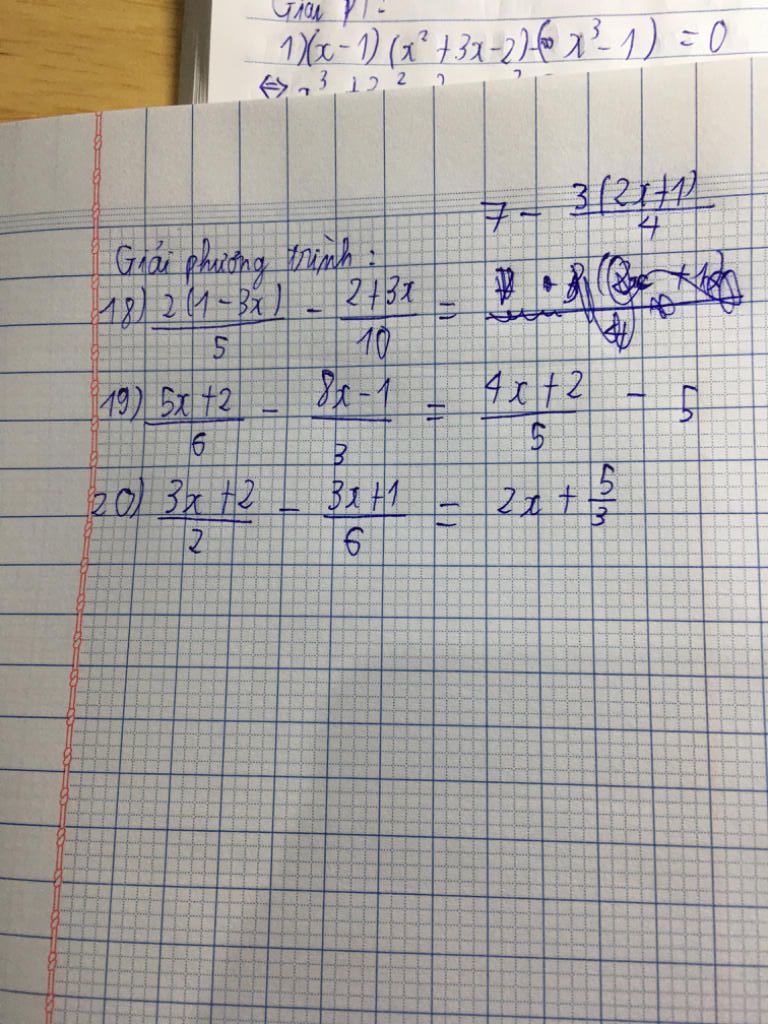 Giải pt:
1)(x-1) (x² + 3x - 2) - ( x³ - 1) = 0
7 - 3(2x+1)/4
Giải phương trình :
18) 2(1-3x)/5 - 2+3x/10 =
19) 5x+2/6 - 8x-1/3 = 4x+2/5 - 5
20) 3x+2/2 - 3x+1/6 = 2x + 5/3